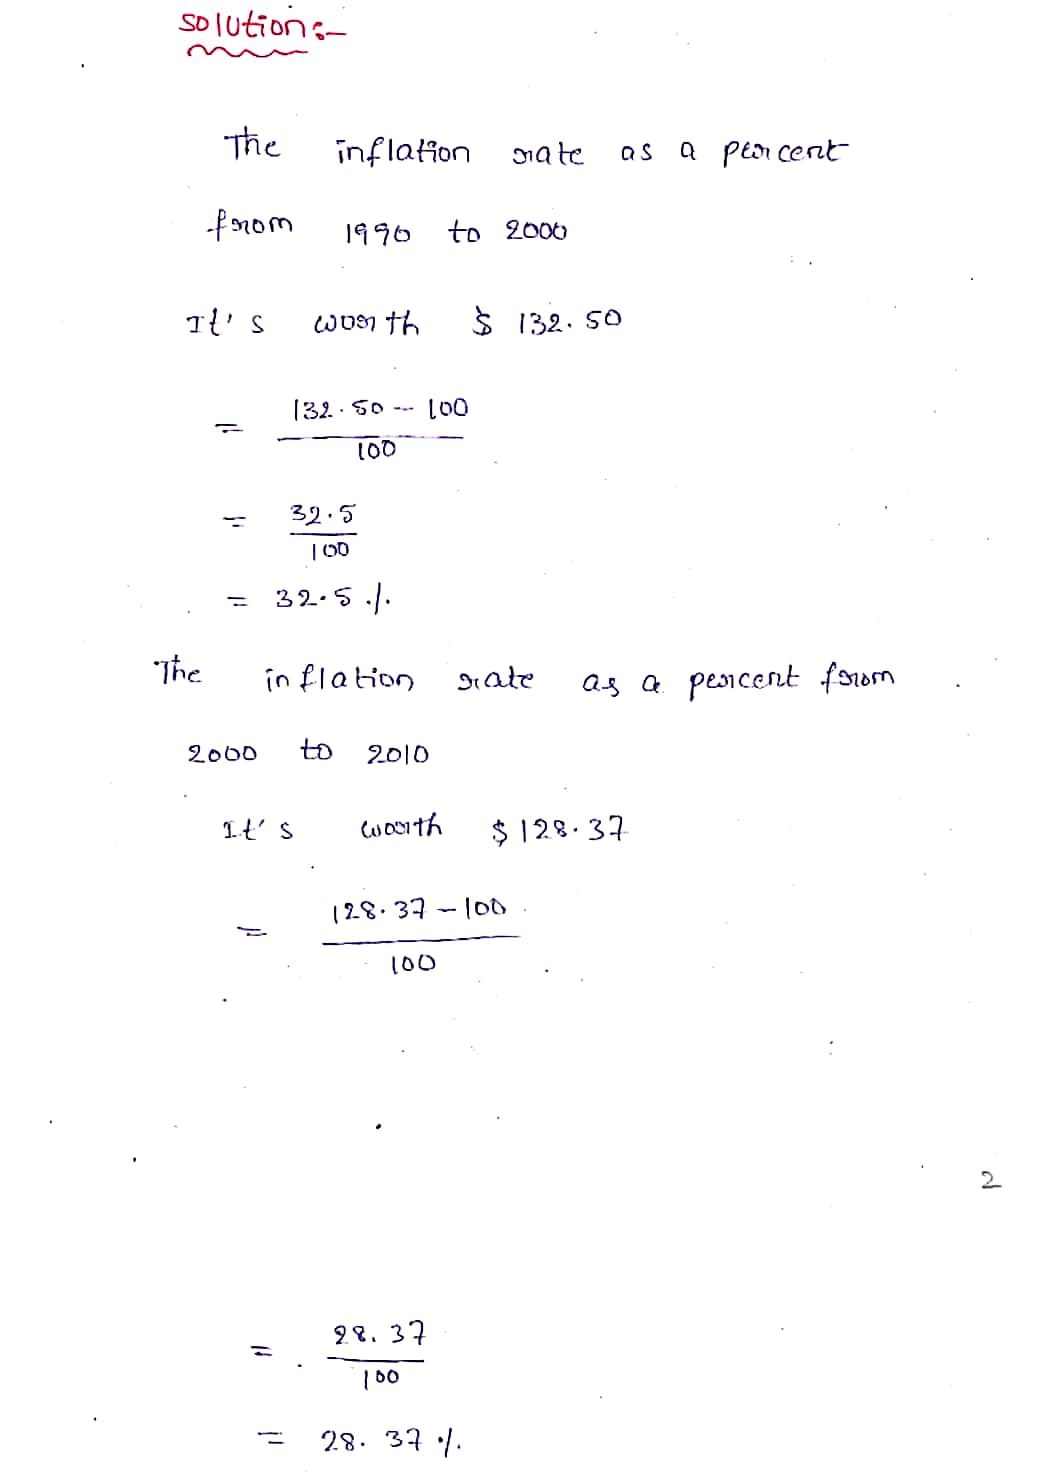 solution:-
The inflation rate as a percent
from 1990 to 2000
It's worth $ 132.50
= 132.50 - 100
100
= 32.5
100
= 32.5 %
The inflation rate as a percent from
2000 to 2010
It's worth $ 128.37
= 128.37 - 100
100
2
= 28.37
100
= 28.37 %